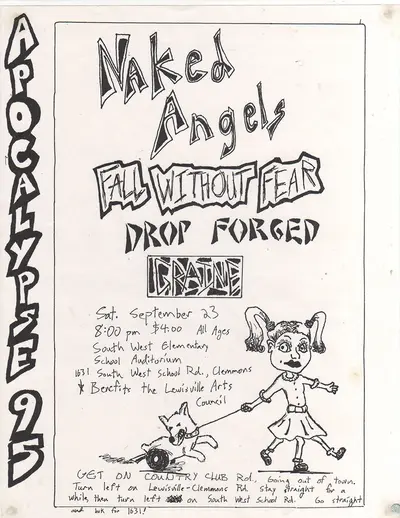 APOCALYPSE 95
Naked
Angels
FALL WITHOUT FEAR
DROP FORGED
GRAINE
Sat. September 23
8:00 pm $4.00 All Ages
South West Elementary
School Auditorium
1631 South West School Rd., Clemmons
* Benefits the Lewisville Arts
Council
GET ON COUNTRY CLUB Rd., Going out of town.
Turn left on Lewisville-Clemmons Rd. stay straight for a
while, then turn left on South West School Rd. Go straight
and look for 1631!